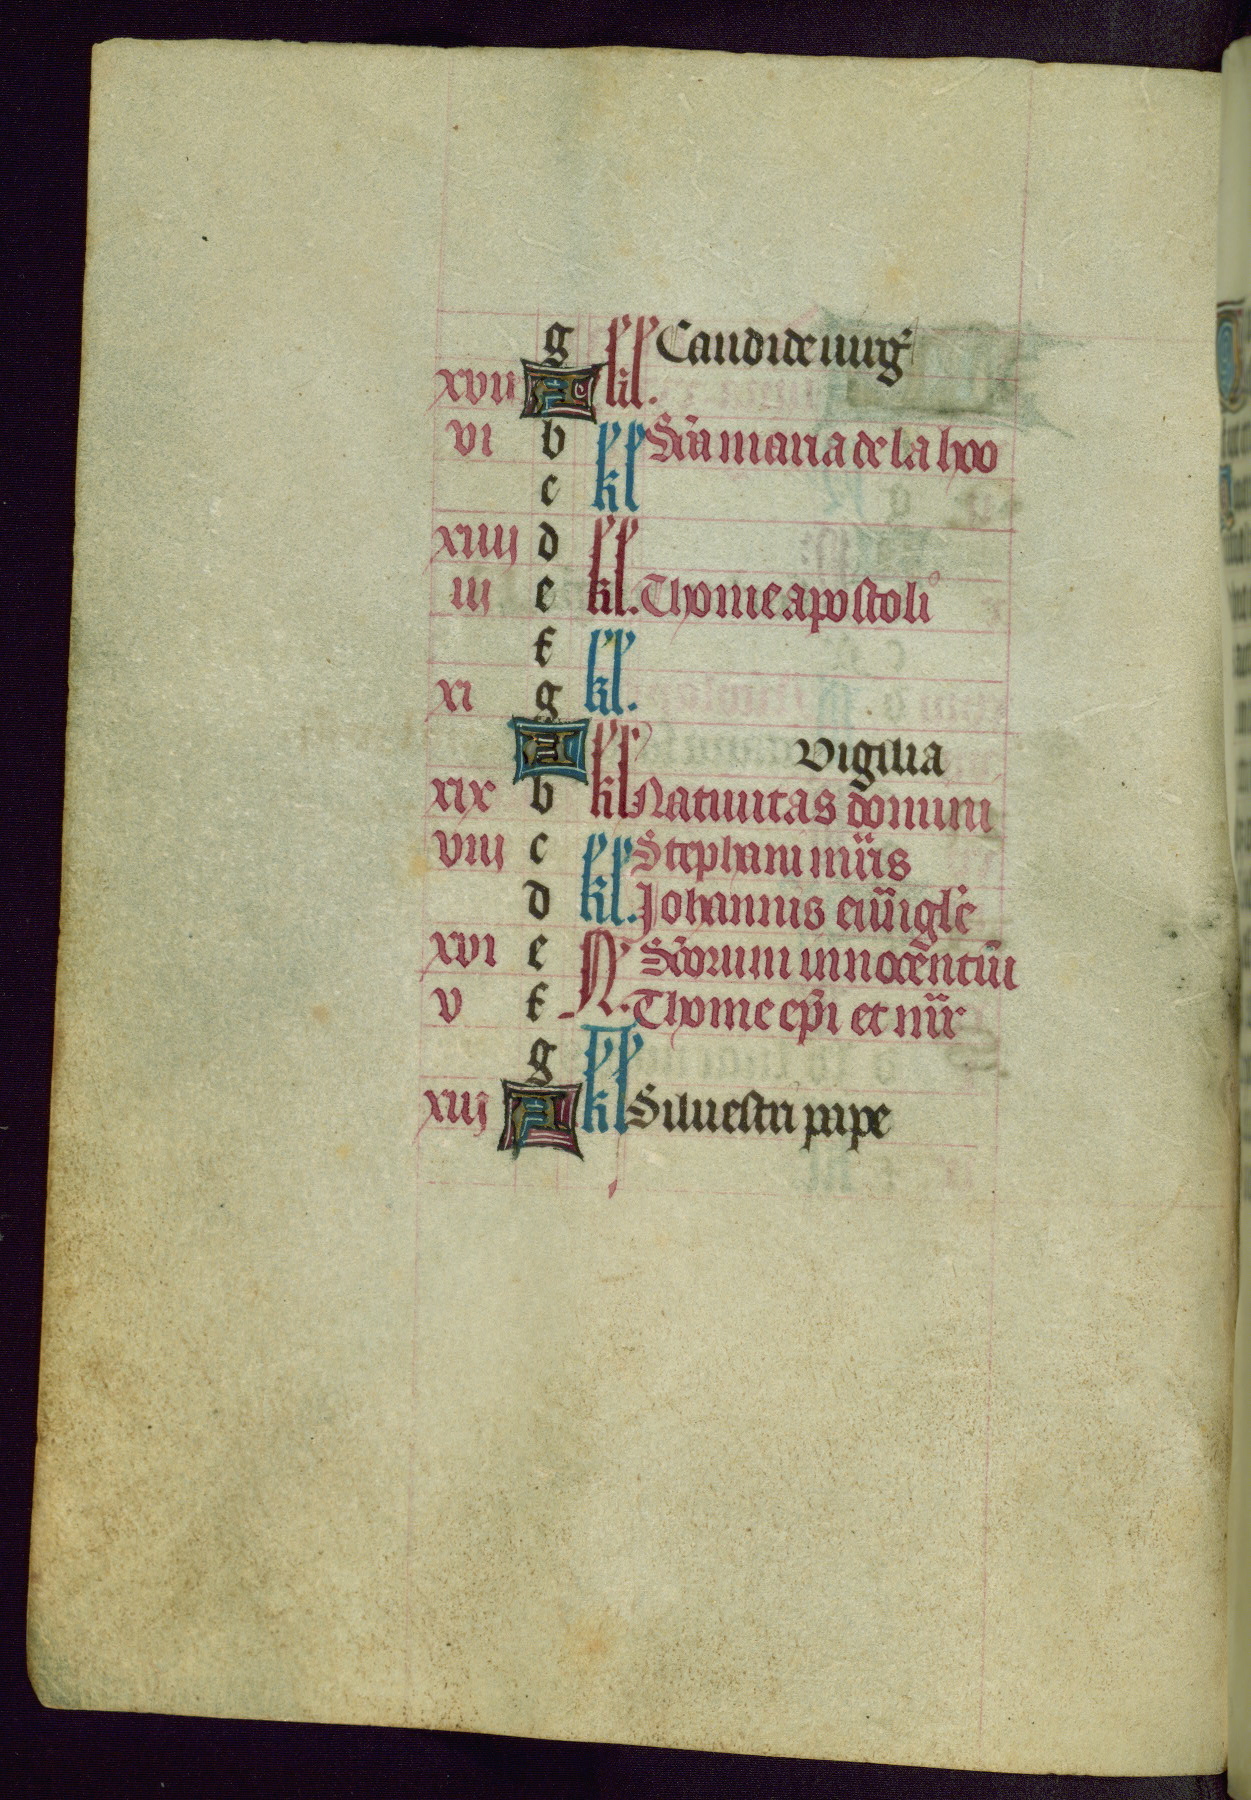 g kl Candide uirg̃
xvii A kl.
vi b kl Sc̃a maria de la hoo
c kl
xiiij d kl
iij e kl. Thome apostoli
f kl
xi g kl.
A kl Vigilia
xix b kl Natiuitas domini
viij c kl Stephani mr̃is
d kl. Johannis euũigle᷒
xvi e N Sc̃orum innocẽntiũ
v f N. Thome ep̃i et mr̃ir
g kl
xiij A kl Siluestri pape